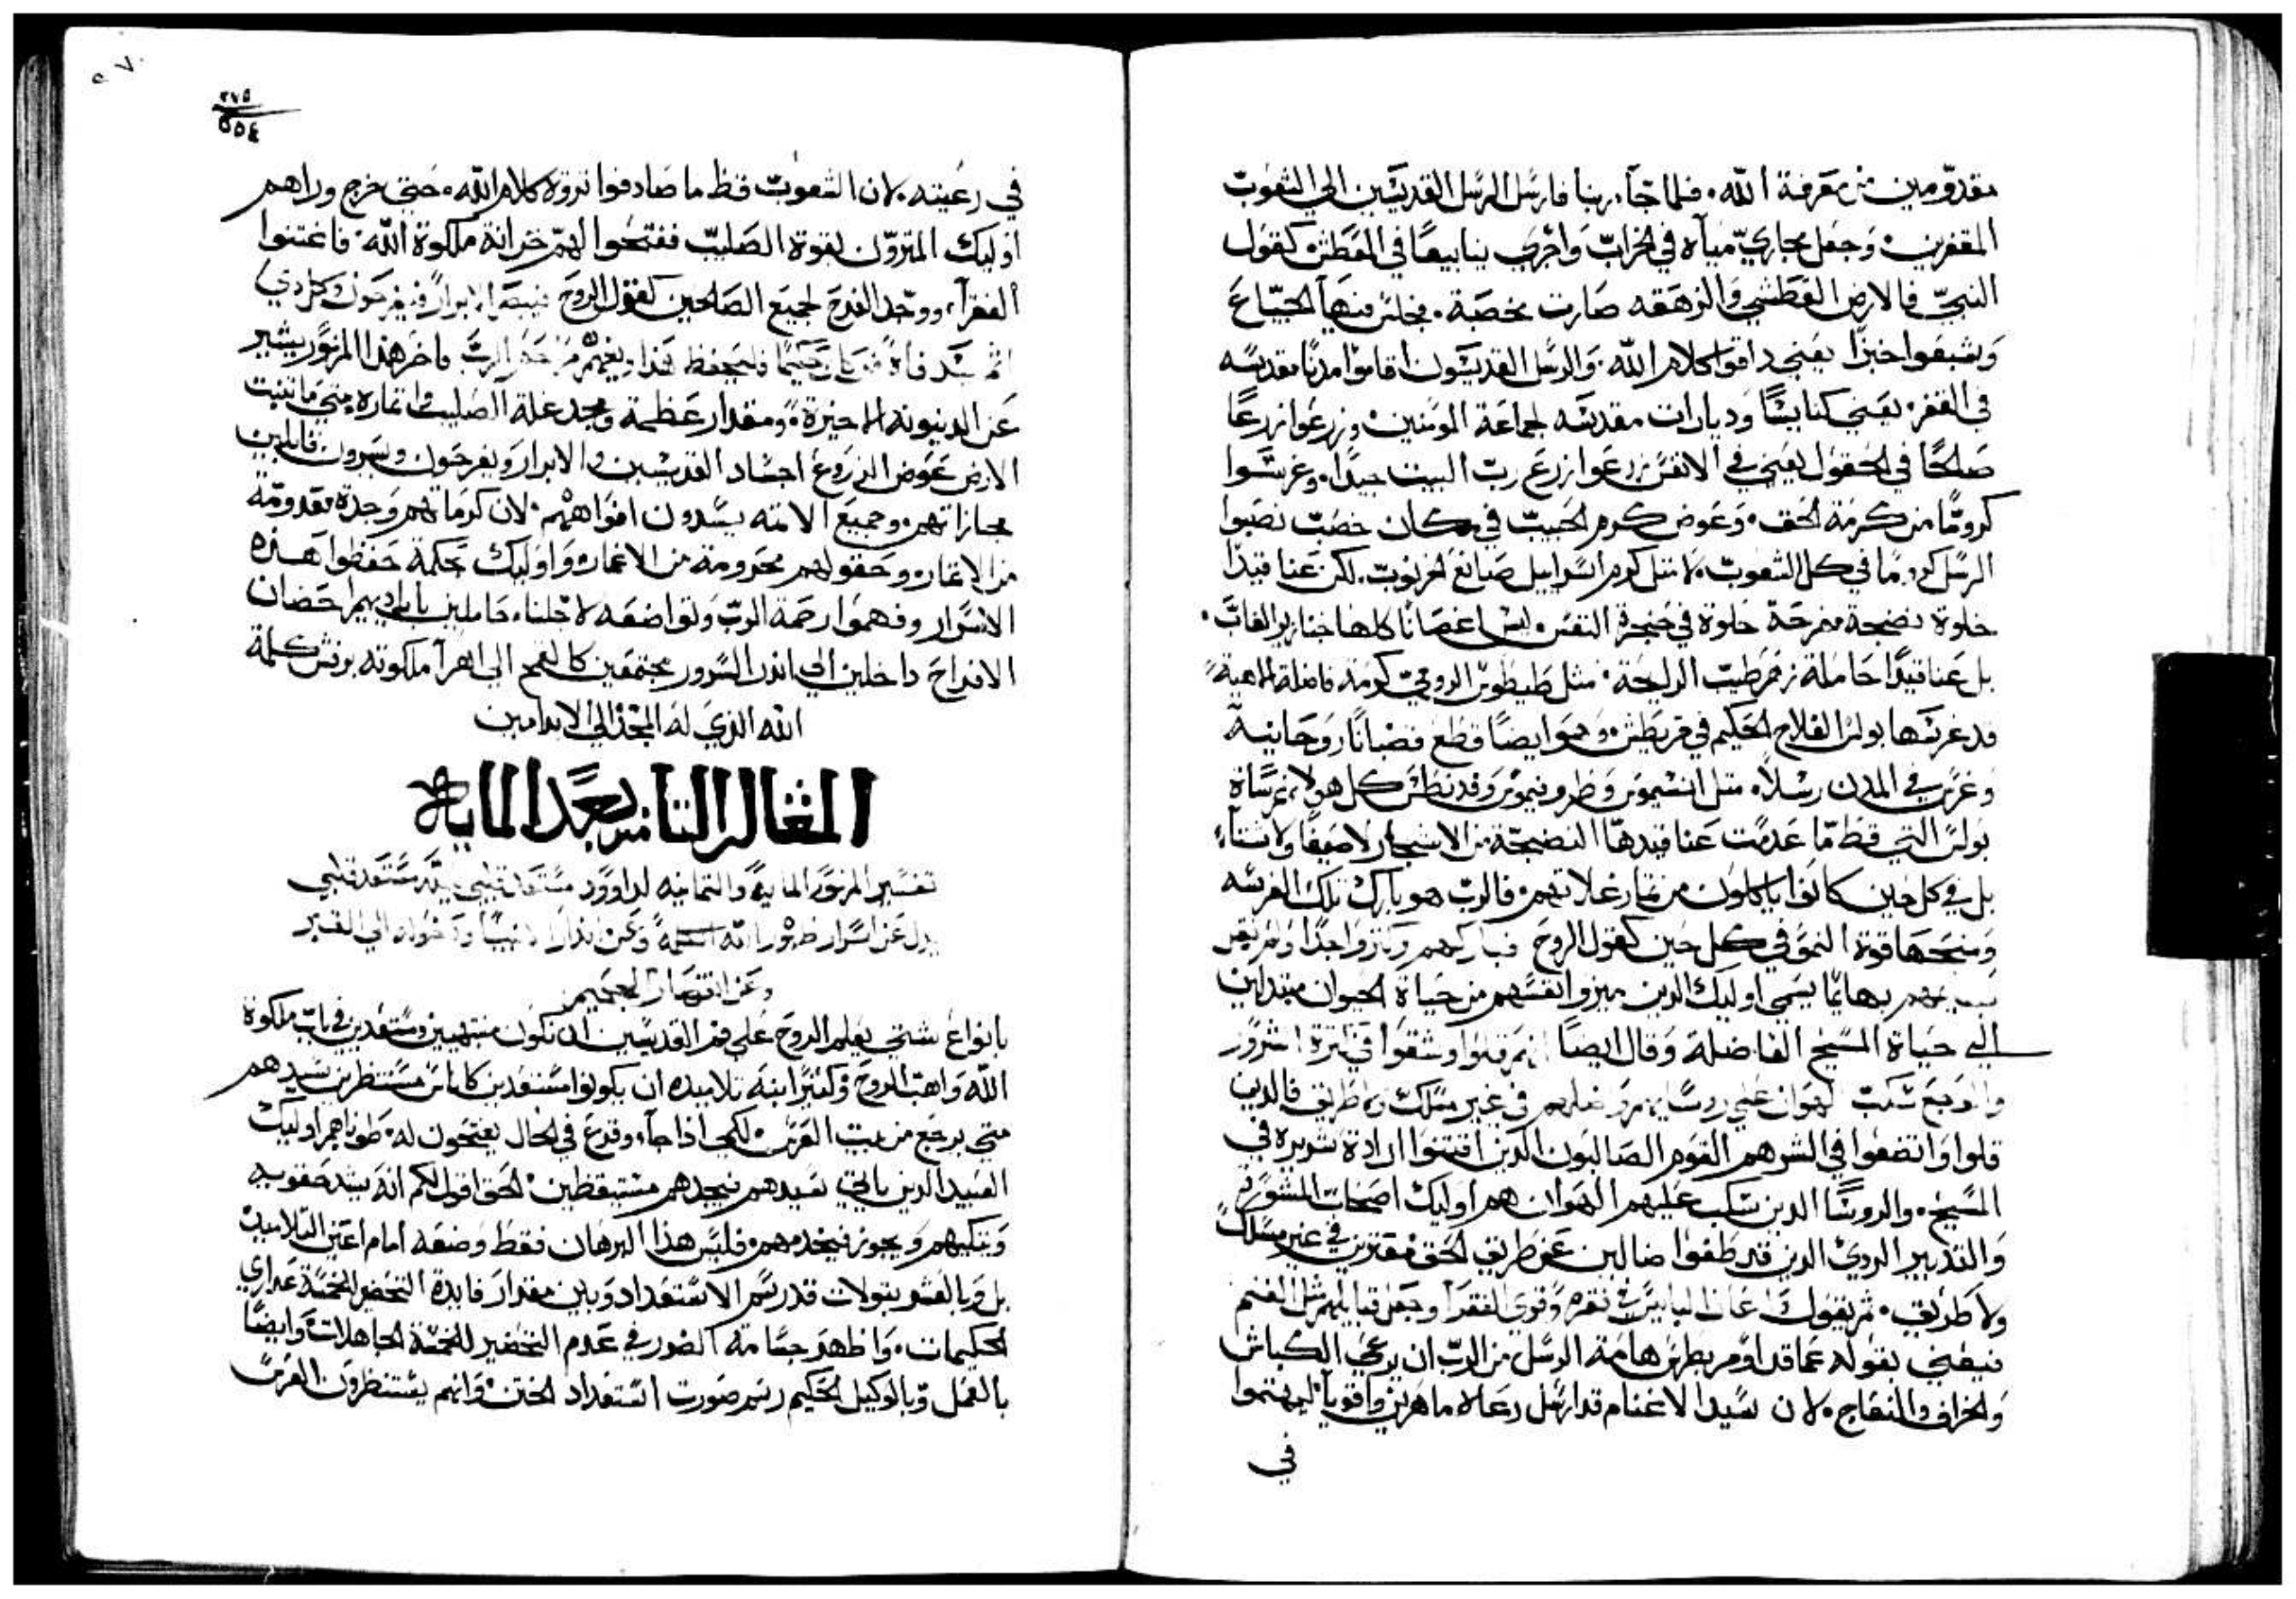 مقدومين من معرفة الله. فلما جآء ربنا فارسل الرسل القديسين الي الشعوب
المقفرين. وجعل مجاري مياه في الخراب واجري ينابيعًا في العطش كقول
النبي فالارض العطشي والزهقه صارت مخصبة. فجلس فيها الجياع
وشبعوا خبزًا يعني ذاقوا كلام الله. والرسل القديسون اقاموا مدنًا مقدسه
في القفر. يعني كنايسًا وديارات مقدسه لجماعة المومنين وزرعوا زرعًا
صالحًا في الحقول يعني في الانفس زرعوا زرع رب البيت جيدًا. وغرسوا
كرومًا من كرمة الحق. وعوض كرم الحبيب في مكان خصب نصبوا
الرسل كرومًا في كل الشعوب. لا مثل كرم اسراييل صانع الخرنوب. لكن عناقيدًا
حلوة نضيجة مفرحة حلوة في حنجرة النفس. ليس اغصانًا كلها خنازير الغاب.
بل عناقيدًا حاملة زهر طيب الرايحة. مثل طيطوس الرومي كرمة فاضلة
قد غرسها بولس الفلاح الحكيم في قريطش. وهو ايضًا قطع قضبانًا روحانية
وغرس في المدن رسلاً. مثل انسيموس وطروفيموس وقد نطش كل هولا غرساة
بولس التي قط ما عدمت عناقيدها النضيجة من الاشجار لا صيفًا ولا شتآء
بل في كل حين كانوا ياكلون من ثمار غلاتهم. فالرب هو بارك تلك الغرسه
ومنحها قوة النمو في كل حين كقول الروح فباركهم وكثروا جدًا ولم ينقص
بهايمهم بهايمًا يسمي اوليك الذين ميزوا انفسهم من حياة الحيوان مبتداين
الي حياة المسيح الفاضلة وقال ايضًا ثم قلوا وشقوا في الشرور
والوجع سكب الهوان علي روسايهم وضلهم في غير مسلك ولا طريق فالذين
قلوا واتضعوا في الشر هم القوم الصالبون الذين اقتنوا ارادة شريرة في
المسيح. والروسا الذين سكب عليهم الهوان هم اوليك اصحاب المشورة
والتدبير الردي الذين قد طغوا ضالين عن طريق الحق مقترين في غير مسلك
ولا طريق. ثم يقول اعان البايس من فقره وقوي الفقرآ وجعل قبايلهم مثل الغنم
فيعني بقوله عما قد اومر بطرس هامة الرسل من الرب ان يرعي الكباش
والخراف والنعاج. لان سيد الاغنام قد ارسل رعاه ماهرين واقويآ ليهتموا
في
٢٧٥
٥٥٤
في رعيته. لان الشعوب قط ما صادفوا ثروة كلام الله. حتي خرج وراهم
اوليك المثرون بقوة الصليب ففتحوا لهم خزانة ملكوة الله. فاغتنوا
الفقرآء ووجد الفرح لجميع الصالحين كقول الروح فيبصر الابرار فيفرحون وكل ذي
اثم يسد فاه فمن كان حكيمًا فليحفظ هذا ويفهم مراحم الرب فاخر هذا المزمور يشير
عن الدينونة الاخيرة. ومقدار عظمة ومجد غلة الصليب واثماره متي ما تنبت
الارض عوض الزروع اجساد القديسين والابرار ويفرحون ويسرون قابلين
مجازاتهم. وجميع الاثمه يسدون افواههم. لان كرماتهم وجدة مقدومة
من الاثمار. وحقولهم محرومة من الاغمار. واوليك بحكمة حفظوا هذه
الاسرار وفهموا رحمة الرب وتواضعه لاجلنا. حاملين باياديهم احضان
الافراح داخلين الي اندر السرور مجتمعين كالقمح الي اهرآ ملكوته برفش كلمة
الله الذي له المجد الي الابد امين
المقاله الثامنه بعد المايه
تفسير المزمور المايه والثمانيه لداوود مستعد قلبي يا الله مستعد قلبي
يدل عن اسرار ظهور الله الكلمة وعن انذار الانبيا ودخوله الي القبر
وعن انتهار الجحيم
بانواع شتي يعلم الروح علي فم القديسين ان نكون منتبهين ومستعدين في باب ملكوة
الله واهب الروح وكنزًا ابنه تلاميذه ان يكونوا مستعدين كاناس مستنظرين سيدهم
متي يرجع من بيت العرس. لكي اذا جآء وقرع في الحال يفتحون له. طوباهم اوليك
العبيد الذين ياتي سيدهم فيجدهم مستيقظين. الحق اقول لكم انه يشد حقويه
ويتكيهم ويجوز فيخدمهم. فليس هذا البرهان فقط وضعه امام اعين التلاميذ
بل وبالعشر بتولات قد رسم الاستعداد وبين مقدار فايدة التحضير الخمسة عذاري
الحكيمات. واظهر جسامة الضرر في عدم التحضير للخمسة الجاهلات. وايضًا
بالعمل وبالوكيل الحكيم رسم صورت استعداد الختن. وانهم يستنظرون العرس